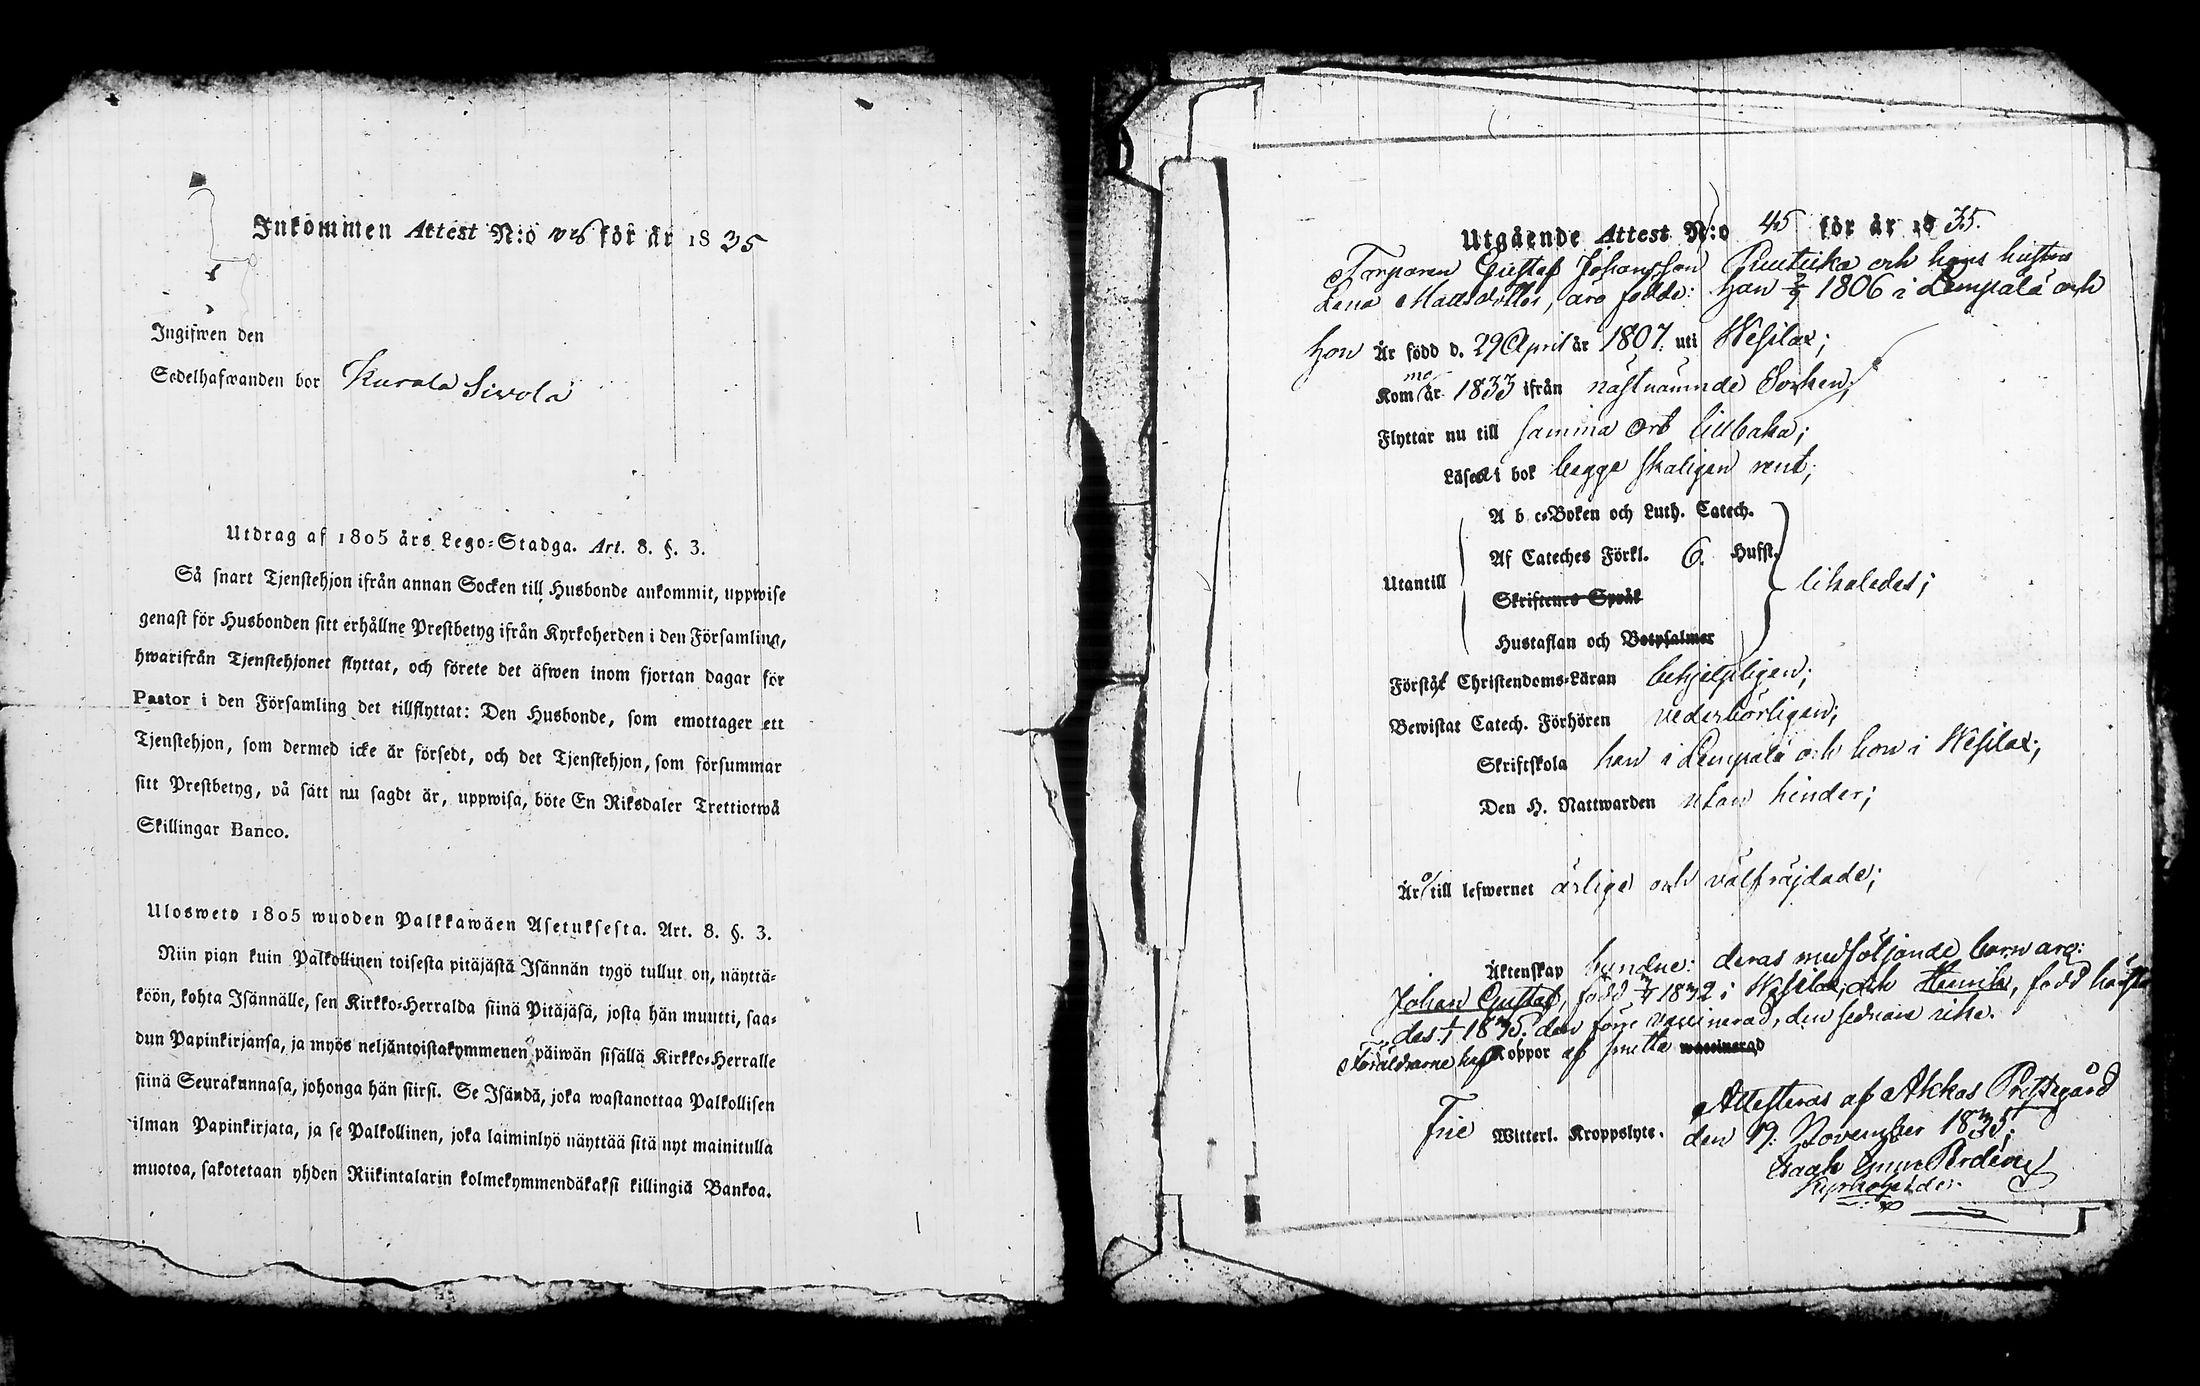 Inkommen Attest N:o för år 1835
Ingifwen den
Sedelhafwanden bor Kurala Sivola
Utdrag af 1805 års Lego-Stadga. Art. 8. §. 3.
Så snart Tjenstehjon ifrån annan Socken till Husbonde ankommit, uppwise
genast för Husbonden sitt erhållne Prestbetyg ifrån Kyrkoherden i den Församling,
hwarifrån Tjenstehjonet flyttat, och förete det äfwen inom fjortan dagar för
Pastor i den Församling det tillflyttat: Den Husbonde, som emottager ett
Tjenstehjon, som dermed icke är försedt, och det Tjenstehjon, som försummar
sitt Prestbetyg, på sätt nu sagdt är, uppwisa, böte En Riksdaler Trettiotwå
Skillingar Banco.
Ulosweto 1805 wuoden Palkkawäen Asetuksesta. Art. 8. §. 3.
Niin pian kuin Palkollinen toisesta pitäjästä Isännän tygö tullut on, näyttä-
köön, kohta Isännälle, sen Kirkko-Herralda siinä Pitäjäsä, josta hän muutti, saa-
dun Papinkirjansa, ja myös neljäntoistakymmenen päiwän sisällä Kirkko-Herralle
siinä Seurakunnasa, johonga hän siirsi. Se Isändä, joka wastanottaa Palkollisen
ilman Papinkirjata, ja se Palkollinen, joka laiminlyö näyttää sitä nyt mainitulla
muotoa, sakotetaan yhden Riikintalarin kolmekymmendäkaksi killingiä Bankoa.
Utgående Attest N:o 45 för år 1835.
Torparen Gustaf Johansson och hans hustru
Lena Matsdotter, äro födde: han 1806 i Lempälä och
hon Är född d. 29 April år 1807. uti Wesilax;
Kommo år 1833 ifrån nästnämnde Socken;
Flyttar nu till samma ort tillbaka;
Läsa i bok begge skäligen rent;
A b c-Boken och Luth. Catech.
Af Cateches Förkl. 6. Hufst.
Utantill likaledes;
Skriftenes Språk
Hustaflan och Botpsalmer
Förstå Christendoms-Läran behjelpligen;
Bewistat Catech. Förhören vederbörligen;
Skriftskola han i Lempälä och hon i Wesilax;
Den H. Nattwarden utan hinder;
Äro till lefwernet ärlige och välfräjdade;
Äktenskap bundne: deras medföljande barn äro:
Johan Gustaf, född 1832 i Wesilax, och Henrik, född härstä
des 1835. den förre vaccinerad, den sednare icke.
Föräldrarne haft Koppor af smitta waccinerad
Frie Witterl. Kroppslyte. Attesteras af Akkas Prestegård
den 19. November 1835.
Kyrkoherde.